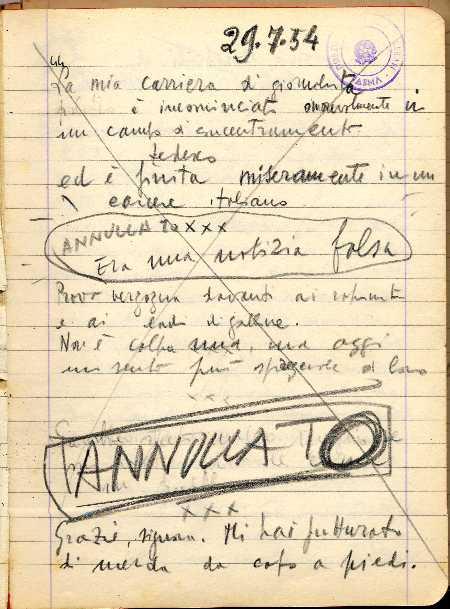 29.7.54
44
La mia carriera di giornalista
è incominciata onorevolmente in
un campo di concentramento
tedesco
ed è finita miseramente in un
carcere italiano
ANNULLATO XXX
Era una notizia falsa
Provo vergogna davanti ai rapinatori
e ai ladri di galline.
Non è colpa mia, ma oggi
mi sento più spregevole di loro
xxx
ANNULLATO
xxx
Grazie, signora. Mi hai pitturato
di merda da capo a piedi.